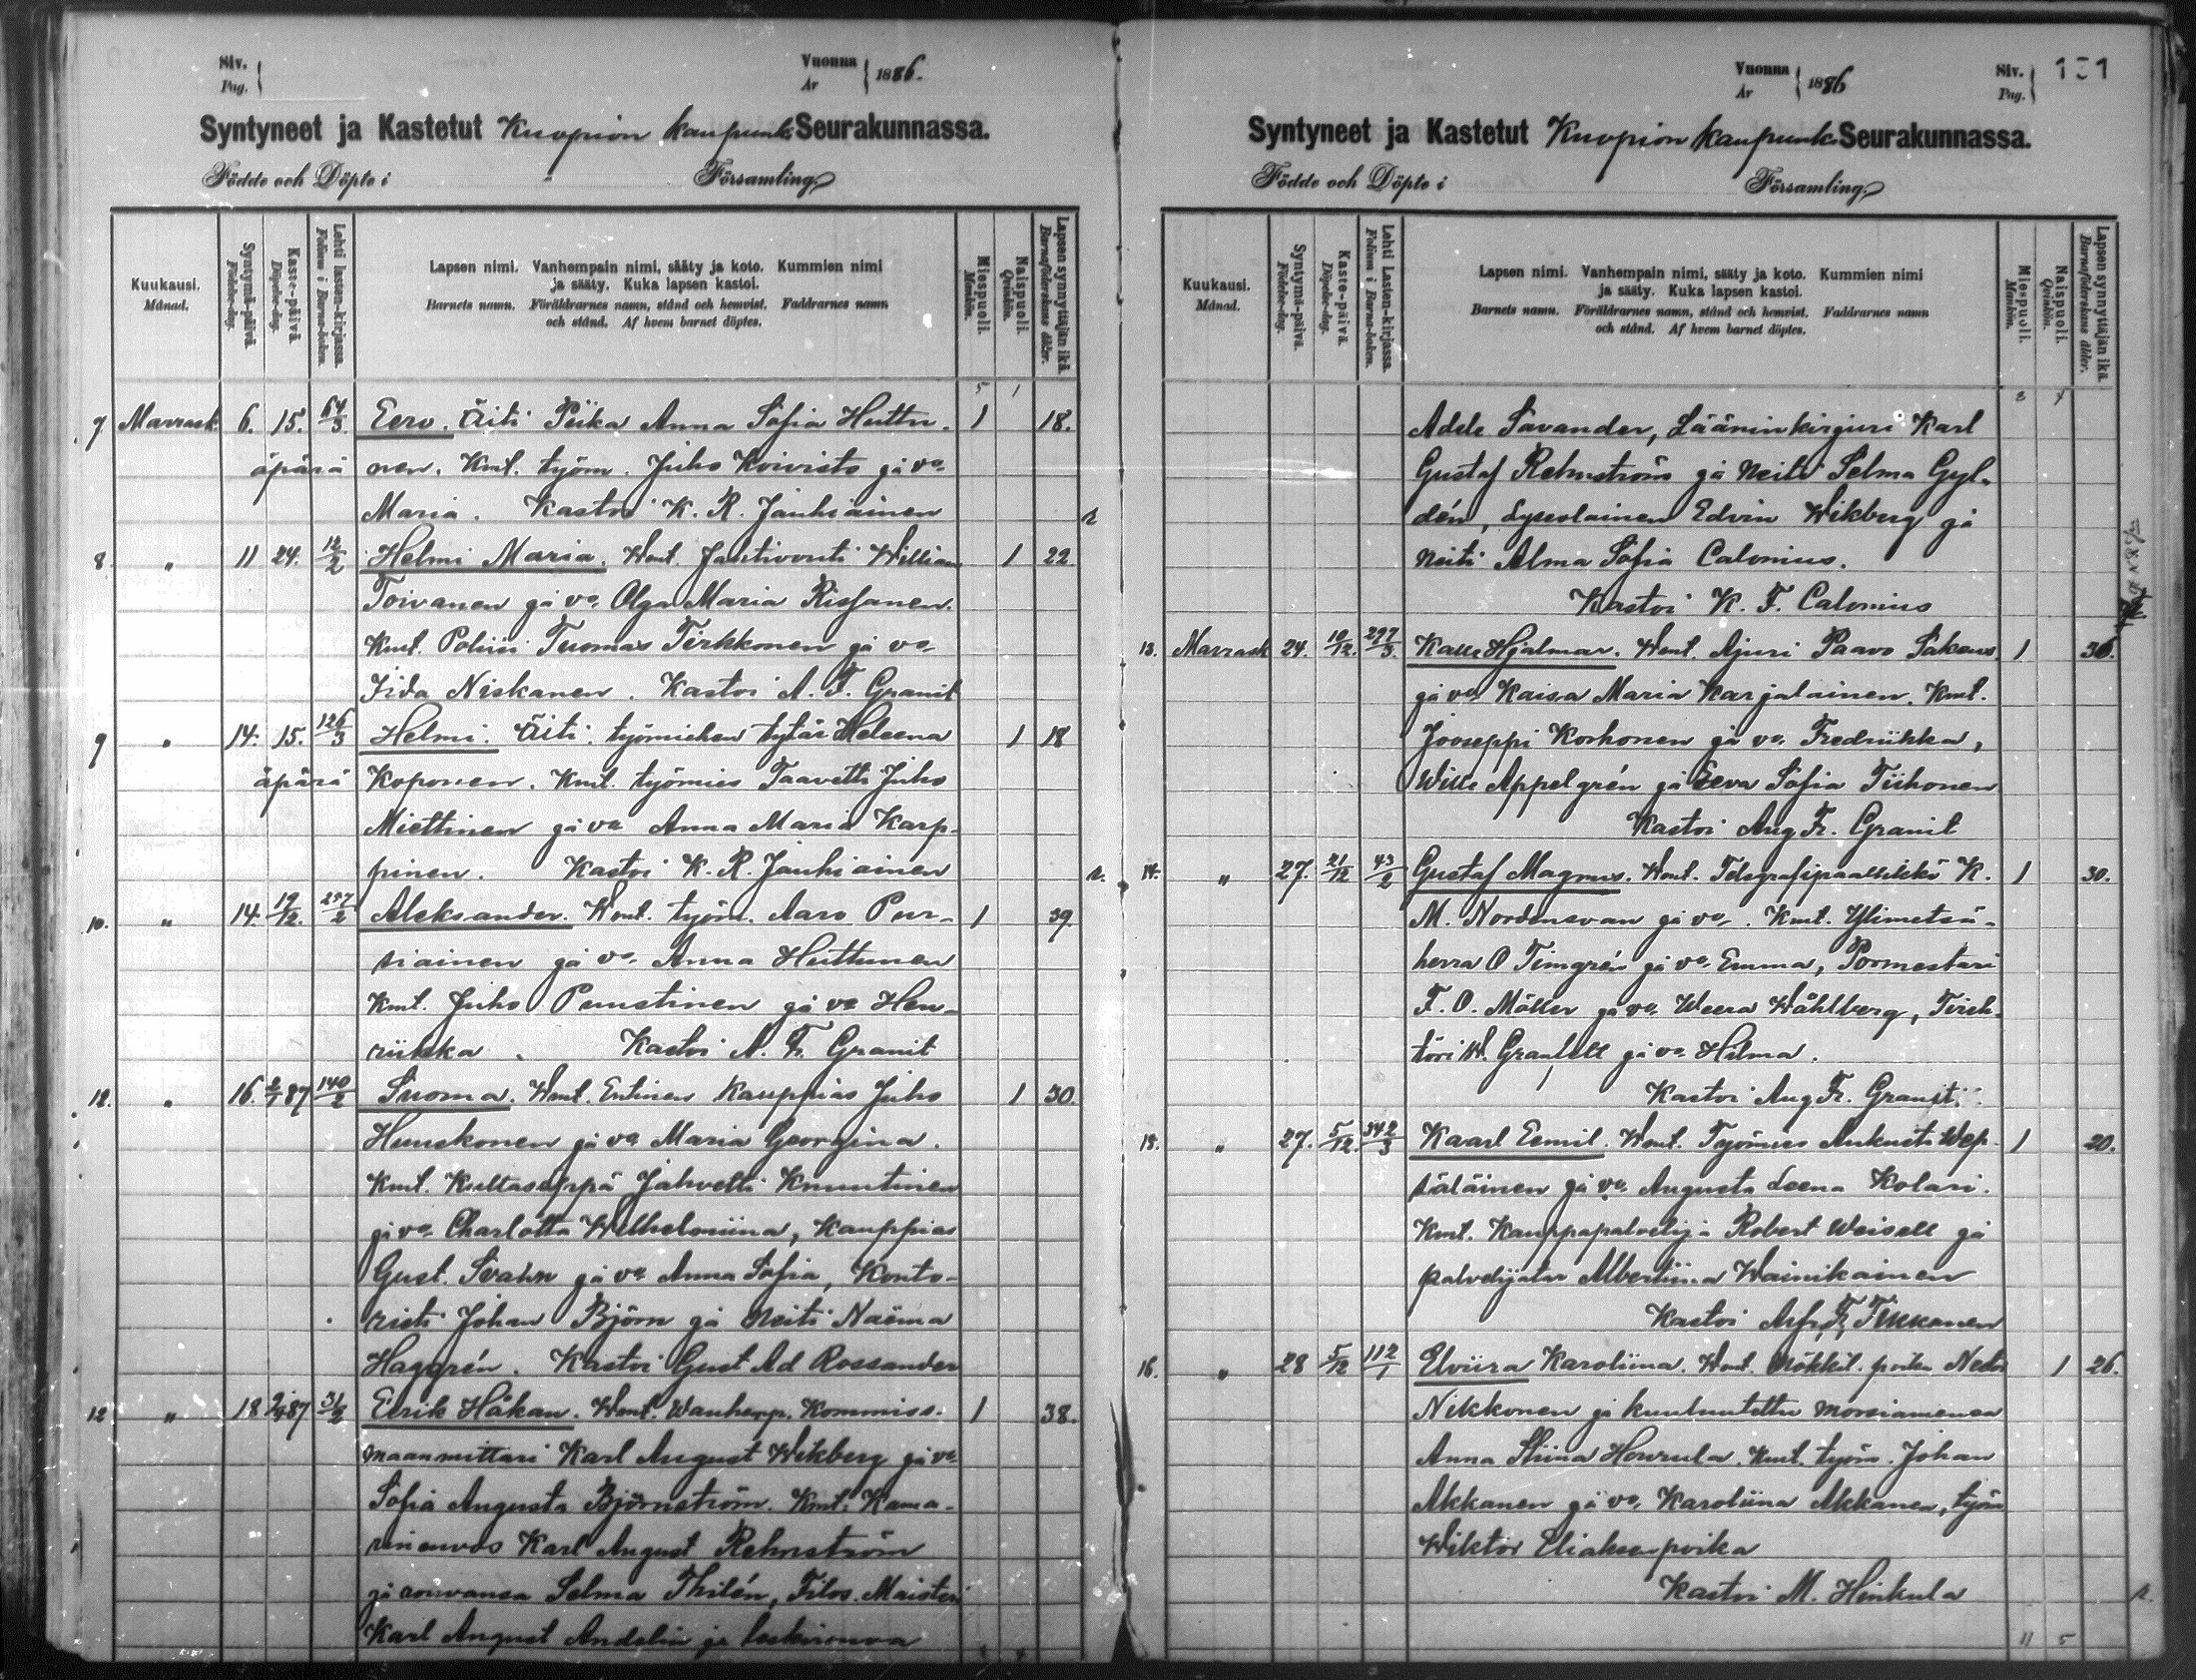 Siv.
Pag.
Vuonna
År
1886.
Syntyneet ja Kastetut Kuopion kaupunk. Seurakunnassa.
Födde och Döpte i " Församling.
Kuukausi.
Månad.
Syntymä-päivä.
Födelse-dag.
Kaste-päivä
Döpelse-dag.
Lehti lasten-kirjassa.
Folium i Barna-boken.
Lapsen nimi. Vanhempain nimi, sääty ja koto. Kummien nimi
ja sääty. Kuka lapsen kastoi.
Barnets namn. Föräldrarnes namn, stånd och hemvist. Faddrarnes namn
och stånd. Af hvem barnet döptes.
Miespuoli.
Mankön.
Naispuoli.
Qvinkön.
Lapsen synnyttäjän ikä.
Barnaföderskans ålder.
5 1
7 Marrask. 6. 15. 64/3 Eero. Äiti Piika Anna Sofia Huttu- 1 18.
äpärä nen. Kmt. työm. Juho Koivisto ja vo.
Maria. Kastoi K. R. Jauhiainen
8. " 11 24. 12/2 Helmi Maria. Wmt. Jahtivouti William 1 22.
Toivanen ja vo. Olga Maria Rissanen.
Kmt. Poliisi Tuomas Tirkkonen ja vo.
Iida Niskanen. Kastoi A. F. Granit
9 " 14. 15. 126/3 Helmi. Äiti. työmiehen tytär Heleena 1 18
äpärä Koponen. Kmt. työmies Taavetti Juho
Miettinen ja vo Anna Maria Karp-
pinen. Kastoi K. R. Jauhiainen
10. " 14. 19/12. 297/2 Aleksander. Wmt. työm. Aaro Pur- 1 39.
siainen ja vo. Anna Huttunen
Kmt. Juho Pemstinen ja vo Hen-
riikka. Kastoi A. Fr. Granit
12. " 16. 2/1 87 140/2 Suoma. Wmt. Entinen Kauppias Juho 1 30.
Huuskonen ja vo. Maria Georgina.
Kmt. Kultaseppä Jahvetti Knuutinen
ja vo. Charlotta Wilhelmiina, Kauppias
Gust. Svahn ja vo. Anna Sofia, Konto-
risti Johan Björn ja Neiti Naëma
Haggrén. Kastoi Gust Ad Rossander
12 " 18 87 31/2 Eerik Håkan. Wmt. Wanhemp. Kommiss. 1 38.
maanmittari Karl August Wikberg ja vo.
Sofia Augusta Björnström. Kmt. Kama-
rineuvos Karl August Rehnström
ja rouvansa Selma Thilén, Filos. Maisteri
Karl August Andelin ja leskirouva
Vuonna
År
1886
Siv.
Pag.
131
Syntyneet ja Kastetut Kuopion kaupunk. Seurakunnassa.
Födde och Döpte i Församling.
Kuukausi.
Månad.
Syntymä-päivä.
Födelse-dag.
Kaste-päivä.
Döpelse-dag.
Lehti Lasten-kirjassa.
Folium i Barna-boken.
Lapsen nimi. Vanhempain nimi, sääty ja koto. Kummien nimi
ja sääty. Kuka lapsen kastoi.
Barnets namn. Föräldrarnes namn, stånd och hemvist. Faddrarnes namn
och stånd. Af hvem barnet döptes.
Miespuoli.
Mankön.
Naispuoli.
Qvinkön.
Lapsen synnyttäjän ikä.
Barnaföderskans ålder.
8 4
Adele Savander, Lääninkirjuri Karl
Gustaf Rehnström ja Neiti Selma Gyl-
dén, Lyseolainen Edvin Wikberg ja
Neiti Alma Sofia Calonius.
Kastoi K. F. Calonius
13. Marrask 24. 10/12. 297/3. Kalle Hjalmar. Wmt. Ajuri Paavo Sakens 1 36.
ja vo Kaisa Maria Karjalainen. Kmt.
Jooseppi Korhonen ja vo. Fredriikka,
Wille Appelgrén ja Eeva Sofia Tiihonen
Kastoi Aug Fr. Granit
14. " 27. 21/12 43/2 Gustaf Magnus. Wmt. Telegrafipäällikkö K. 1 30.
M. Nordensvan ja vo. Kmt. Ylimetsä-
herra O Timgrén ja vo. Emma, Pormestari
F. O. Möller ja vo. Weera Wåhlberg, Tireh-
töri W. Granfelt ja vo. Hilma.
Kastoi Aug Fr. Granit.
15. " 27. 5/12. 342/3 Kaarl Eemil. Wmt. Työmies Aukusti Wep- 1 20.
säläinen ja vo. Augusta Leena Kolari.
Kmt. Kauppapalvelija Robert Weisell ja
palvelijatar Albertiina Wainikainen
Kastoi Alfr. Fr. Tikkanen
16. " 28 5/12 112/1 Elviira Karoliina. Wmt. Mökkil. poika 1 26.
Nikkonen ja kuulutettu morsiamensa
Anna Stiina Hourula. Kmt. työm. Johan
Akkanen ja vo. Karoliina Akkanen, työm
Wiktor Eliaksenpoika
Kastoi M. Hinkula
11 5